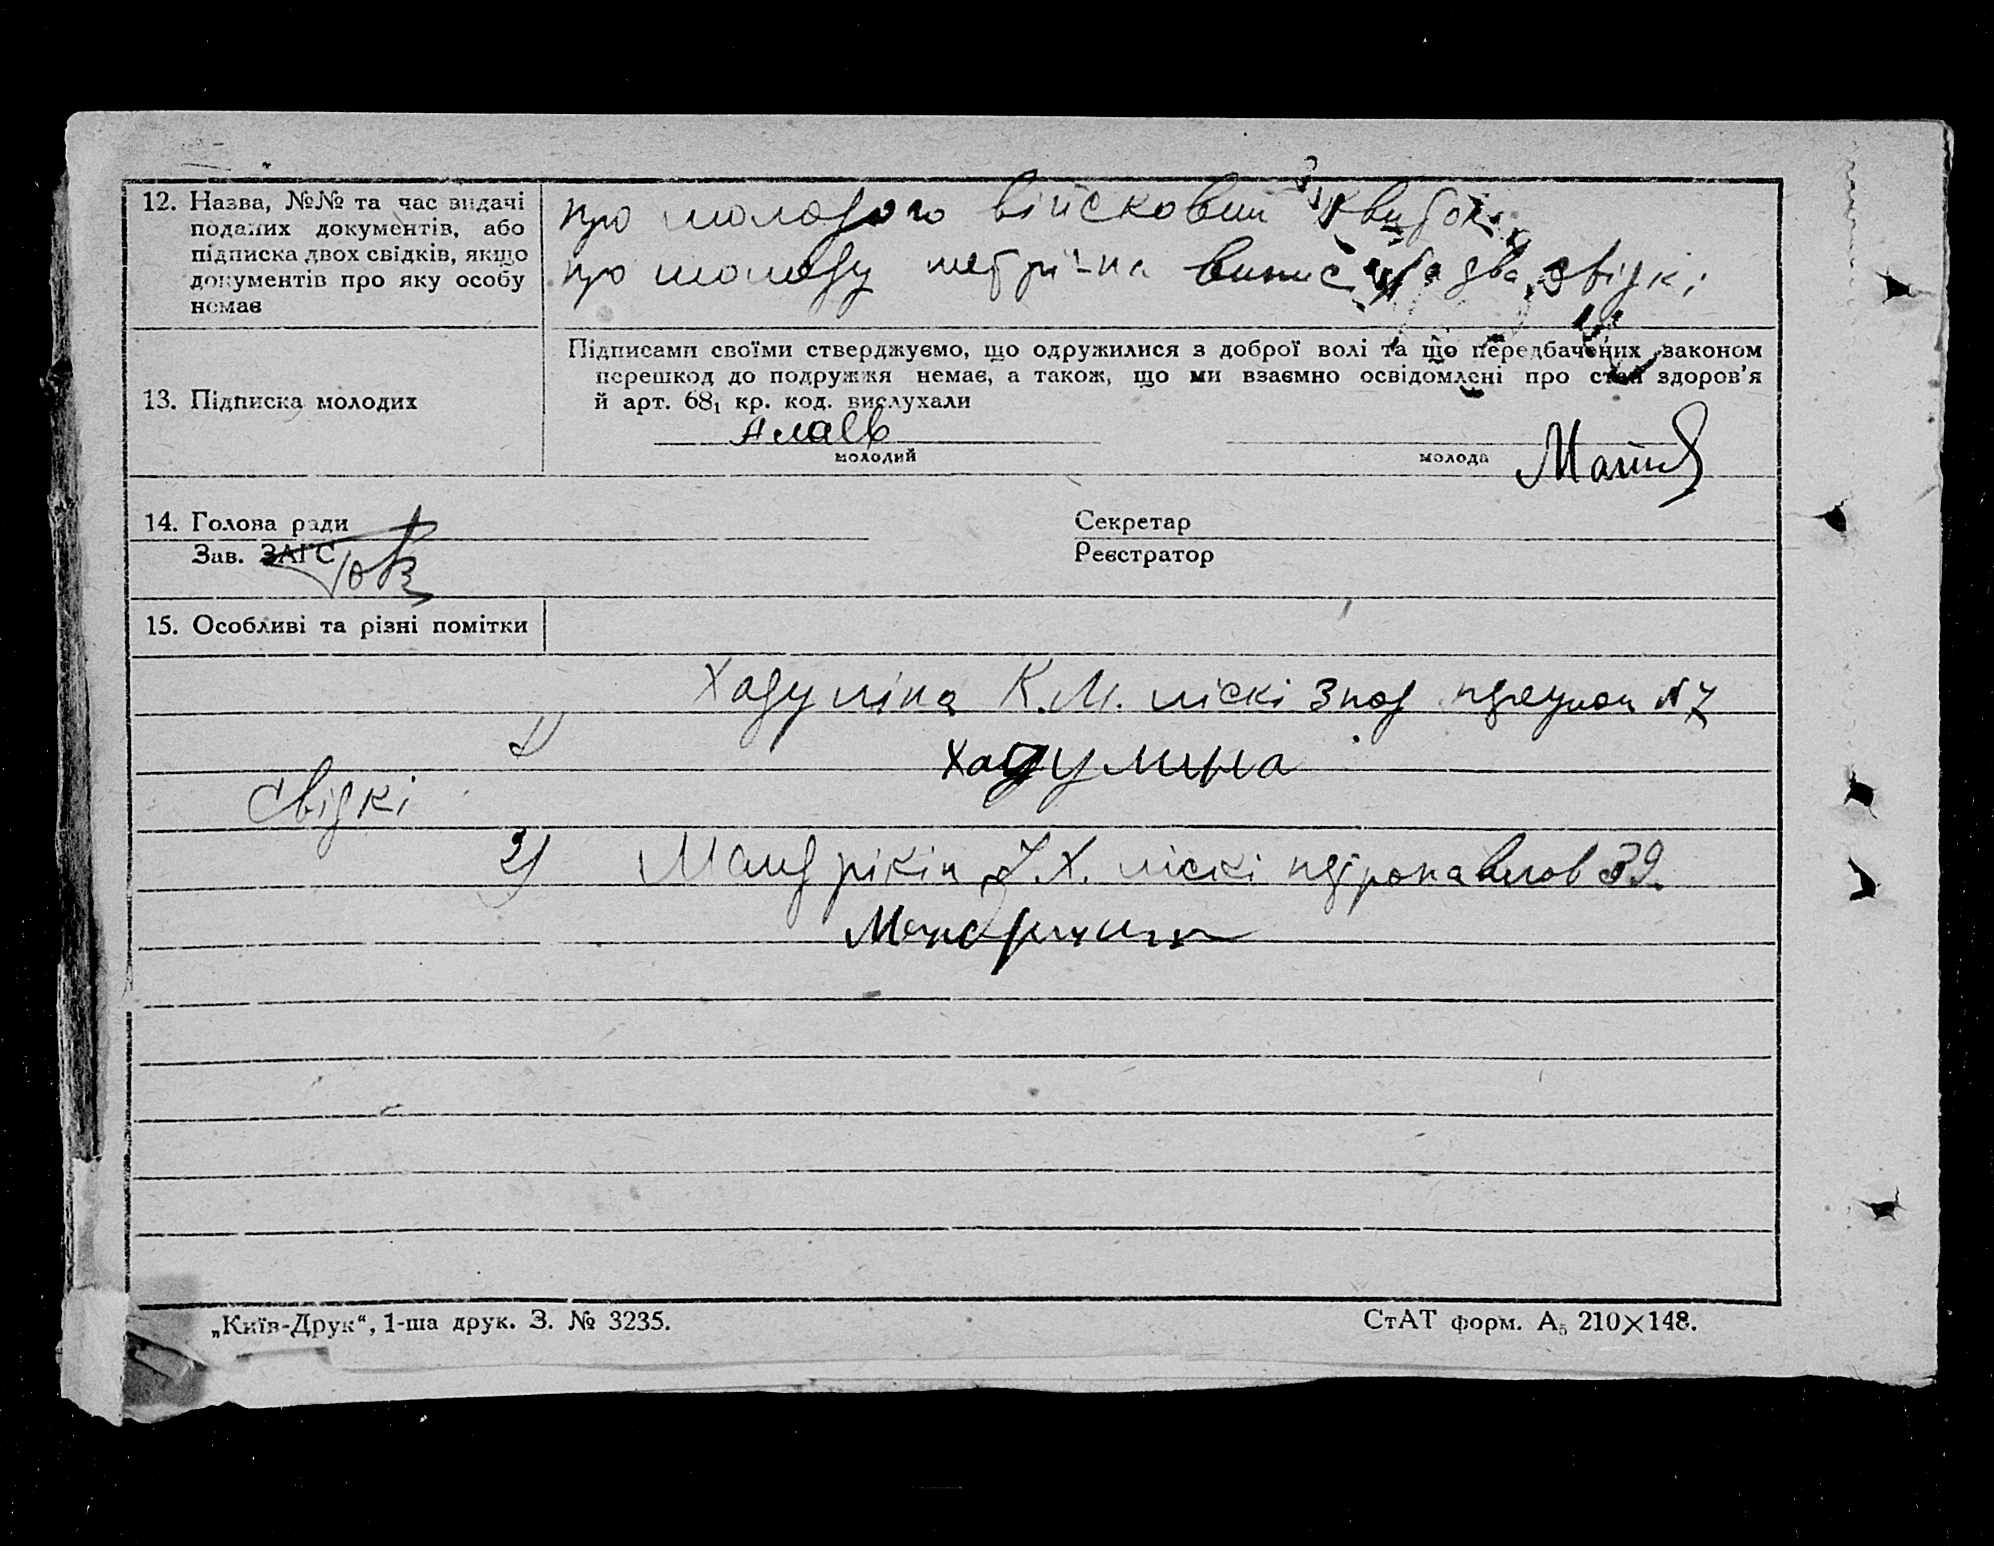 12. Назва, №№ та час видачі
поданих документів, або
підписка двох свідків, якщо
документів про яку особу
немає
про молодого війсковий квиток
про молоду метрічна випис та два свідкі
13. Підписка молодих
Підписами своїми стверджуємо, що одружилися з доброї волі та що передбачених законом
перешкод до подружжя немає, а також, що ми взаємно освідомлені про стан здоров'я
й арт. 68₁ кр. код. вислухали
Алаев
молодий
молода
14. Голова ради
Секретар
Зав. ЗАГС
Реєстратор
15. Особливі та різні помітки
1) Хадуліна К.М. ліскі 3 под №7
Хадулина
свідкі
2) Мандрікін Х. ліскі 39.
Мандрикин
„Київ-Друк“, 1-ша друк. З. № 3235.
СтАТ форм. А₅ 210×148.